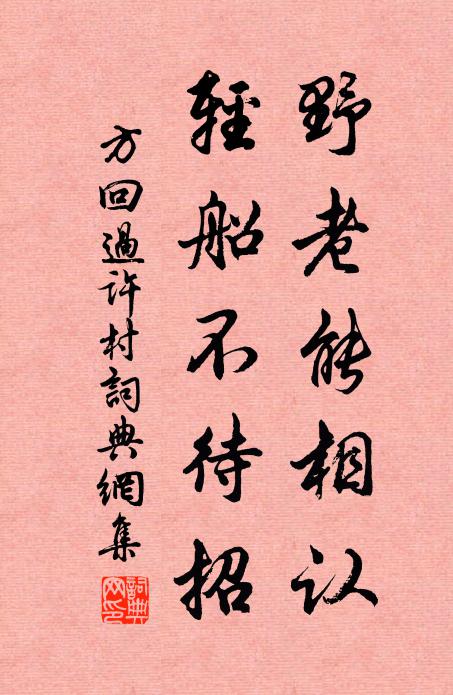 野老能相认
輕船不待招
方回過許村詞典網集
詞典网印